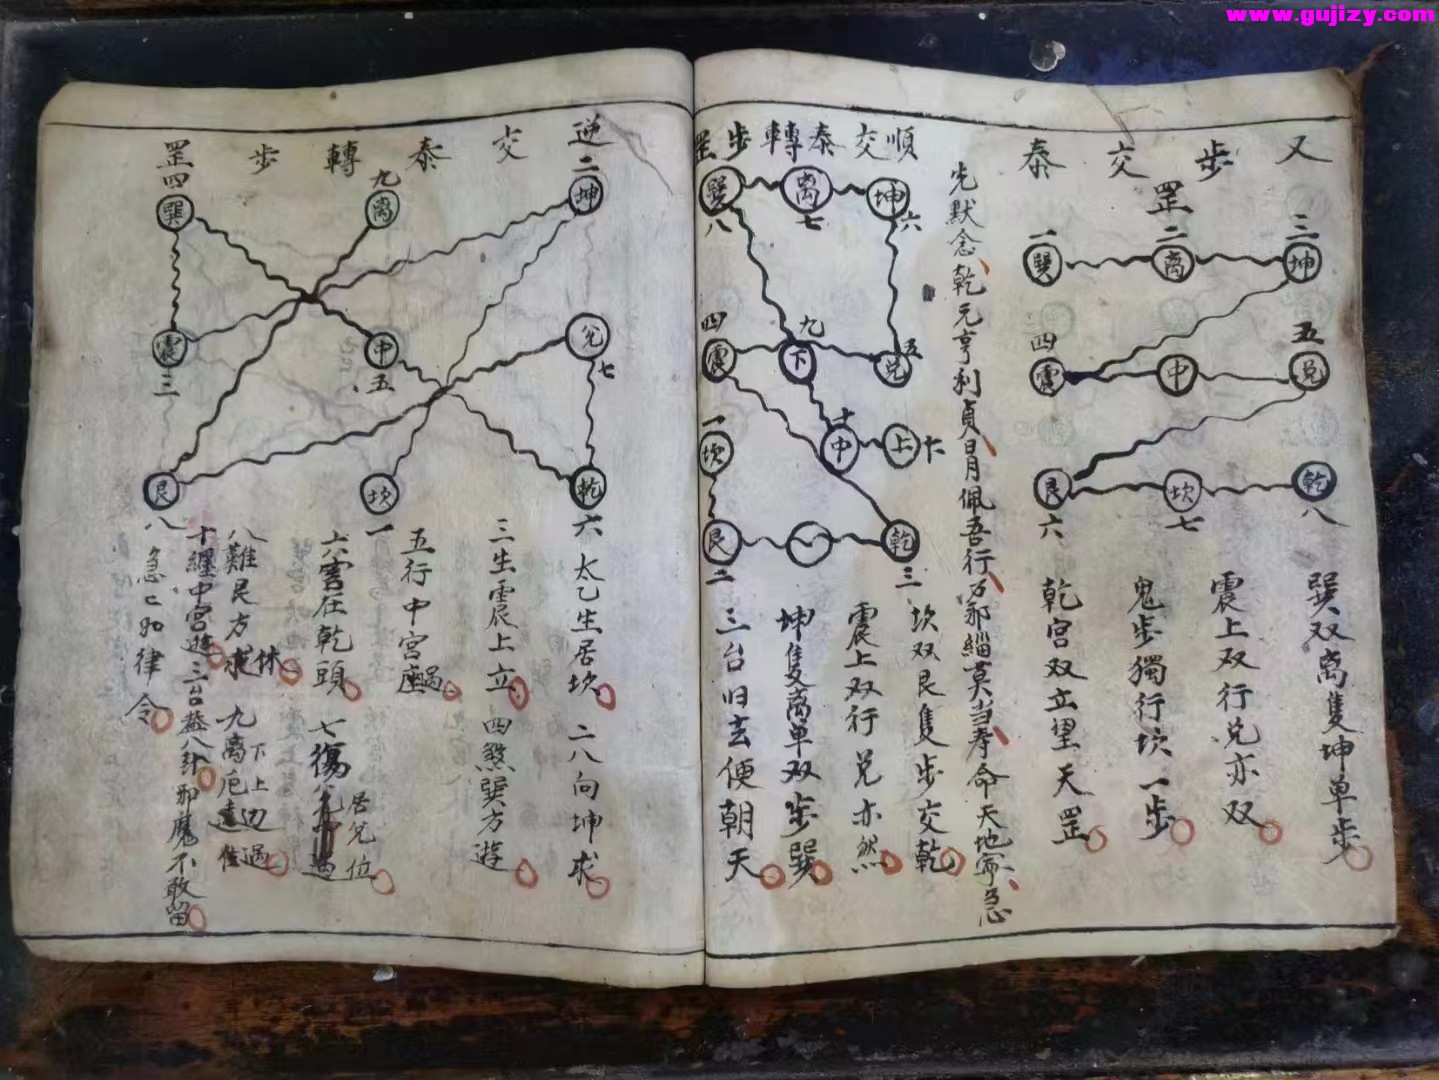 www.gujizy.com
又步交泰
罡
三
坤
二
离
一
巽
五
兑
中
四
震
八
乾
七
坎
六
艮
巽双离隻坤单步
震上双行兑亦双
鬼步獨行坎一步
乾宫双立望天罡
先默念乾元亨利貞
佩吾行
莫当奉命天地
急
順交泰轉步罡
坤
六
离
七
巽
八
兑
五
九
下
四
震
上
十
中
一
坎
乾
三
艮
二
坎双艮隻步交乾
震上双行兑亦然
坤隻离单双步巽
三台归去便朝天
逆交泰轉步罡
二
坤
九
离
四
巽
兑
七
中
五
震
三
乾
六
坎
一
艮
八
太乙生居坎
二八向坤求
三生震上立
四煞巽方遊
五行中宫
六害在乾頭
七傷
居兑位
八難艮方求
休
九离
下上边遇
十纏中宫遊
三台
八卦
邪魔不敢留
急匕如律令